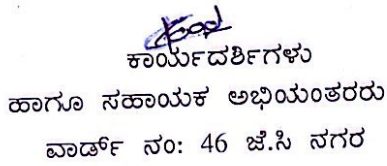 ಕಾರ್ಯದರ್ಶಿಗಳು
ಹಾಗೂ ಸಹಾಯಕ ಅಭಿಯಂತರರು
ವಾರ್ಡ್ ನಂ: 46 ಜೆ.ಸಿ ನಗರ